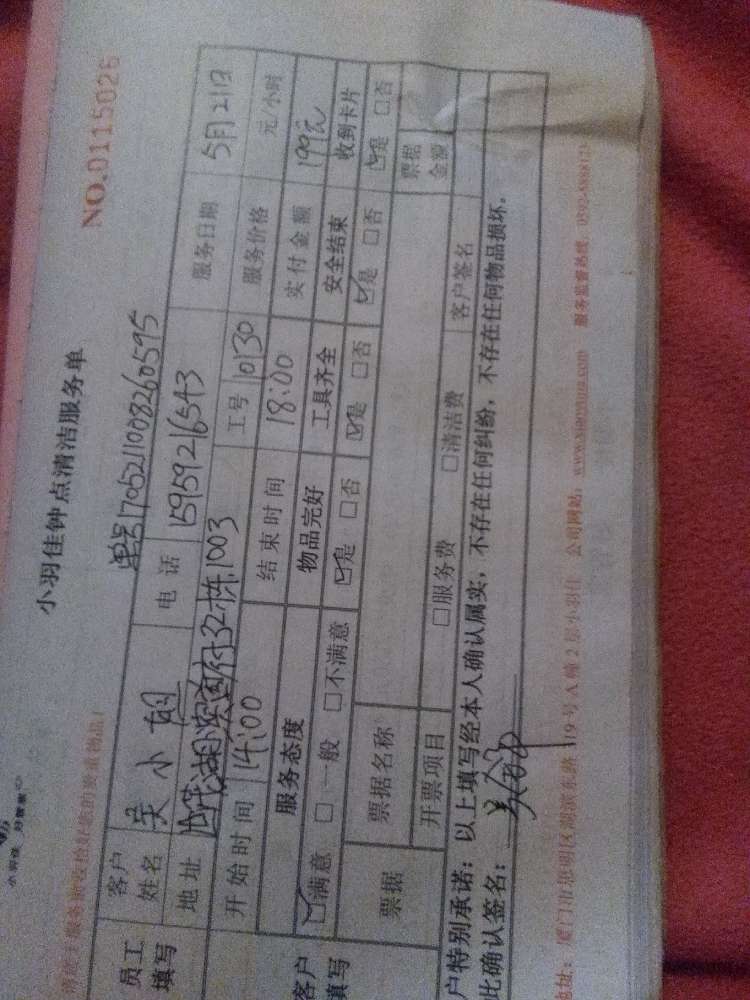 小羽佳 好管家
小羽佳钟点清洁服务单
NO.0115026
单号1705211008260595
员工填写 客户姓名 吴小姐 电话 15959216543 服务日期 5月21日
地址 湖滨 32栋1003 工号 10130 服务价格 元/小时
开始时间 14:00 结束时间 18:00 实付金额 199元
服务态度 物品完好 工具齐全 安全结束 收到卡片
客户填写 ☑满意 □一般 □不满意 ☑是 □否 ☑是 □否 ☑是 □否 ☑是 □否
票据 票据名称 票据金额
开票项目 □服务费 □清洁费 客户签名
户特别承诺:以上填写经本人确认属实,不存在任何纠纷,不存在任何物品损坏。
此确认签名:
地址:厦门市思明区湖滨东路119号A幢2层小羽佳 公司网站: 服务监督热线: